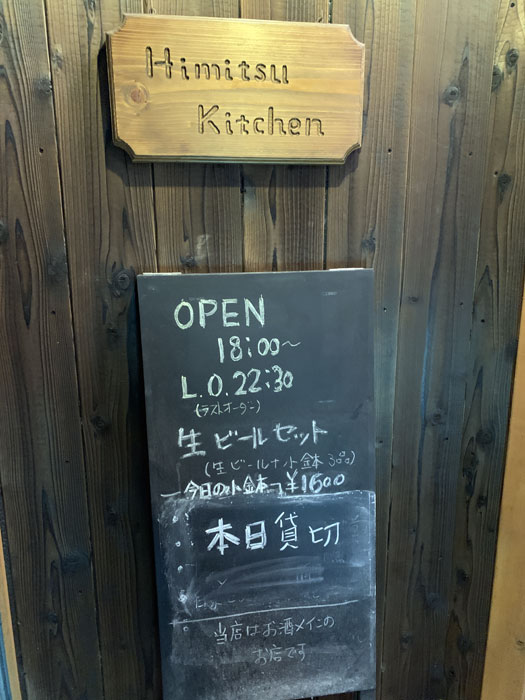 Himitsu
Kitchen
OPEN
18:00~
L.O.22:30
(ラストオーダー)
生ビールセット
(生ビール+小鉢3品)
今日の小鉢 ¥1600
本日貸切
当店はお酒メインの
お店です